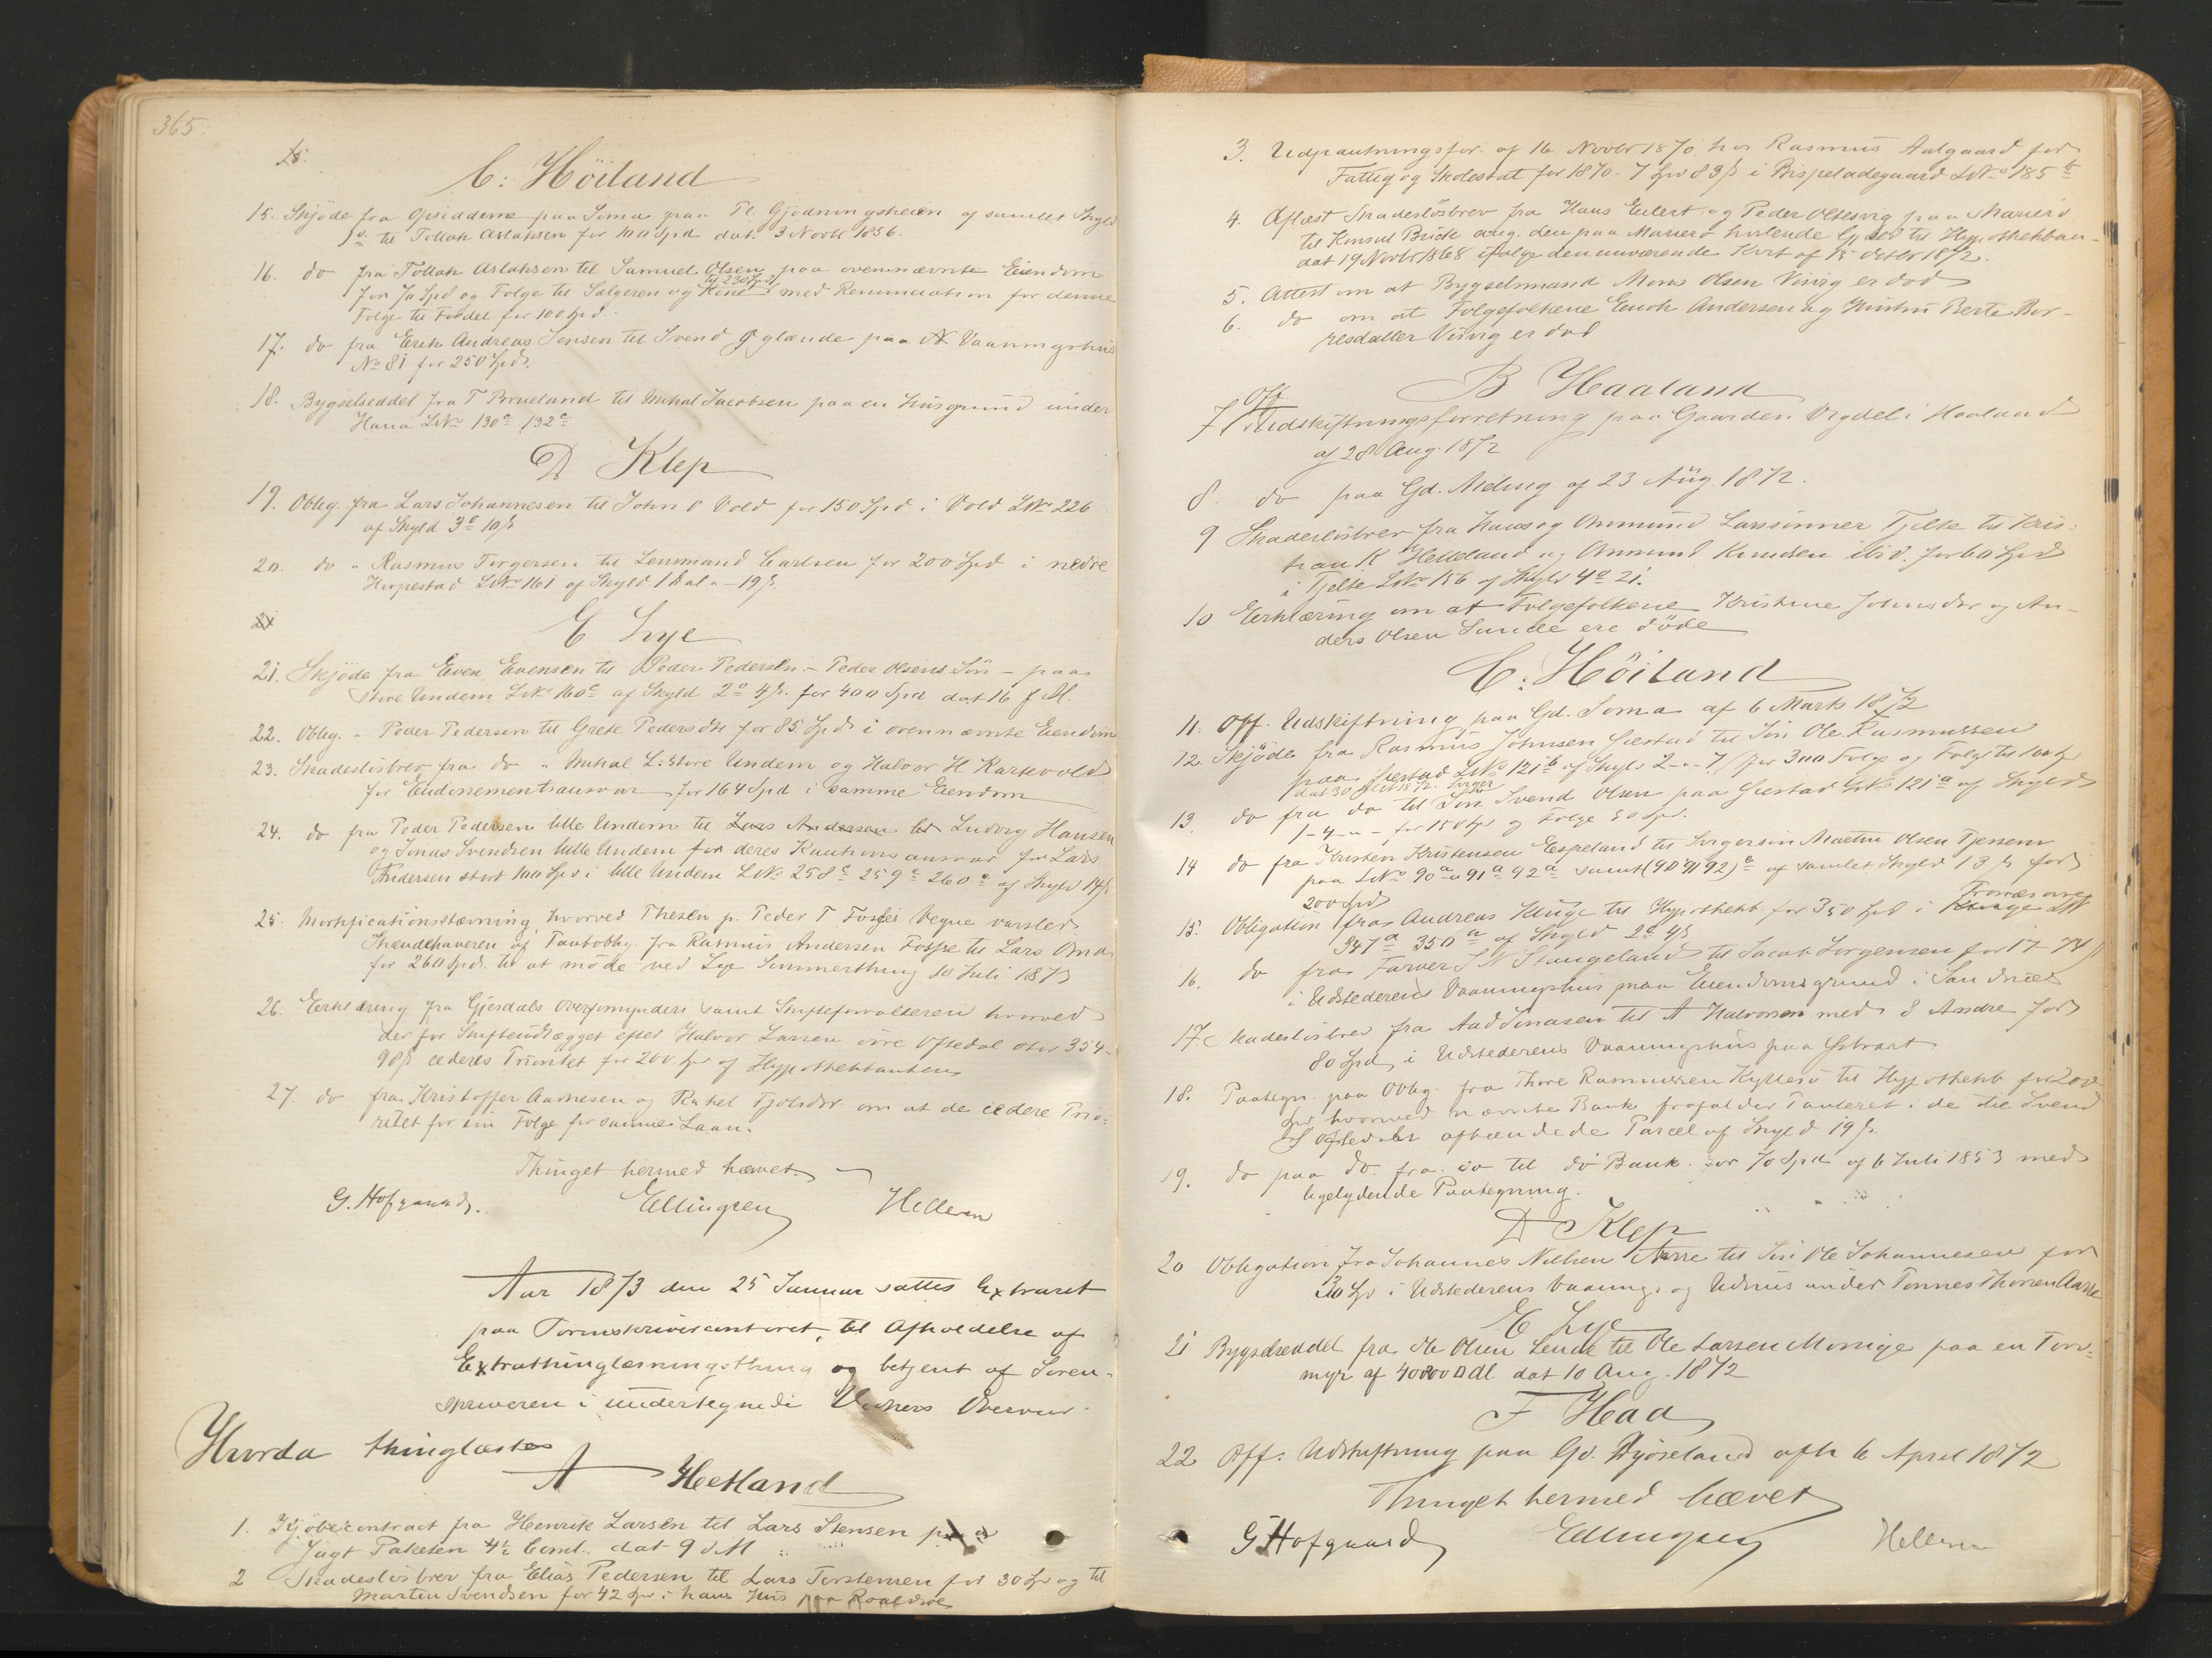 365.
C: Höiland
15. Skjøde fra Opsidderne paa Soma paa Pl. Gjedningsheien af samlet Skyld
til Tollak Aslaksen for 100 Spd dat. 3 Novbr 1856.
16. do fra Tollak Aslaksen til Samuel Olsen paa ovennævnte Eiendom
for 70 Spd og Følge til Sælgeren og Kone til 230 Spd med Renunciation for denne
Følge til Fordel for 100 Spd.
17. do fra Erik Andreas Jensen til Svend Øglænde paa Vaaningshus
No 81 for 250 Spd.
18. Bygselseddel fra T Brueland til Mikal Jacobsen paa en Husgrund under
Hana LNo 130c 132c
D Klep
19. Oblig. fra Lars Johannesen til John O Vold for 150 Spd i Vold LNo 226
af Skyld 3o 10 s
20. do " Rasmus Torgersen til Lensmand Carlsen for 200 Spd i nedre
Horpestad LNo 161 af Skyld 1 dal o - 19 s.
E Lye
21. Skjøde fra Even Evensen til Peder Pedersen - Peder Olsens Søn - paa
Store Undem LNo 160c af Skyld 2o 4 s. for 400 Spd dat 16 f M.
22. Oblig. " Peder Pedersen til Grete Pedersdtr for 85 Spd i ovennævnte Eiendom
23. Skadesløsbrev fra do " Mikal L. Store Undem og Halvor H Kartevold
for Endossementsansvar for 164 Spd i samme Eiendom
24. do fra Peder Pedersen lille Undem til Lars Andersen Ludvig Hansen
og Jonas Svendsen lille Undem for deres Kautionsansvar for Lars
Andersen stort 100 Spd i lille Undem LNo 258c 259c 260c af Skyld 14 s
25. Mortificationsstævning, hvorved Thesen p. Peder T Fosses Vegne varsler
Ihændehaveren af Pantoblig. fra Rasmus Andersen Fosse til Lars Oma
for 260 Spd. til at møde ved Lye Sommerthing 10 Juli 1873
26. Erklæring fra Gjesdals Overformynderi samt Skifteforvalteren hvorved
der for Skifteudlægget efter Halvor Larsen øvre Oftedal stor 354-
98 s cederes Prioritet for 200 Spd af Hypothekbanken
27. do fra Kristoffer Aadnesen og Rakel Tjølsdtr. om at de cedere Prio-
ritet for sin Følge for samme Laan.
Thinget hermed hævet.
G. Hofgaard. Ellingsen Helleren
Aar 1873 den 25 Januar sattes Extraret
paa Sorenskrivercontoret, til Afholdelse af
Extrathinglæsningsthing og betjent af Soren-
skriveren i undertegnede Vidners Overvær
Hvorda thinglæstes
A Hetland
1. Kjøbecontract fra Henrik Larsen til Lars Stensen paa
Jagt Paketen 4½ Coml. dat 9 d M
2 Skadesløsbrev fra Elias Pedersen til Lars Torstensen for 30 Spd og til
Martin Svendsen for 42 Spd i hans Hus paa Roaldsøe
3. Udpantningsfor. af 16 Novbr 1870 hos Rasmus Aalgaard for
Fattig og Skoleskat for 1870 - 7 Spd 83 s i Bispeladegaard LNo 185b
4. Aflæst Skadesløsbrev fra Hans Eilert og Peder Oltesvig paa Marierø
til Konsul Brick ang. den paa Marierø hvilende Gjæld til Hypothekban-
dat 19 Novbr 1868 ifølge den nuværende Kvit af 15 Octbr 1872.
5. Attest om at Bygselsmand Mons Olsen Viig er død
6. do om at Følgefolkene Enok Andersen og Hustru Berte Bor-
resdatter Viig er død
B Haaland
7 Off. Udskiftningsforretning paa Gaarden Vigdel i Haaland
af 28 Aug. 1872
8. do paa Gd. Meling af 23 Aug. 1872.
9 Skadesløsbrev fra Hans og Ommund Larssønner Tjelte til Kris-
tian K Helleland og Ommund Knudsen ibid. for 60 Spd
i Tjelte LNo 156 af Skyld 4o 21.
10 Erklæring om at Følgefolkene Kristine Johnsdtr og An-
ders Olsen Sunde ere døde
C: Höiland
11. Off. Udskiftning paa Gd. Soma af 6 Marts 1872
12. Skjøde fra Rasmus Johnsen Giestad til Søn Ole Rasmussen
paa Giestad LNo 121b af Skyld 2 - o - 7 for 300 Følge og Følge til 100 Spd
13. do fra do til Svend Olsen paa Giestad LNo 121a af Skyld
1-4-o - for 150 Spd og Følge 50 Spd.
14 do fra Kristen Kristensen Espeland til Svigersøn Martin Olsen Tjessem
paa LNo 90a 91a 92a samt (90 91 92)c af samlet Skyld 18 s for
200 Spd
15. Obligation fra Andreas Kluge til Hypothekb for 350 Spd i
347a 350a af Skyld 2o 4 s
16. do fra Farver S N Stangeland til Jacob Jørgensen for 17-74 s
i Udstederens Vaaningshus paa Eiendomsgrund i Sandnæs
17 Skadesløsbrev fra Aad Jonasen til A Halvorsen med 3 Andre for
80 Spd i Udstederens Vaaningshus paa Østraat
18. Paategn. paa Oblig. fra Thore Rasmussen Kyllesø til Hypothekb for 200
Spd hvorved nævnte Bank frafalder Panteret i de til Svend
S Oftedal afhændede Parcel af Skyld 19 s.
19. do paa do fra do til do Bank for 70 Spd af 6 Juli 1853 med
ligelydende Paategning.
D Klep
20 Obligation fra Johannes Nielsen Aarre til Søn Ole Johannesen for
30 Spd i Udstederens Vaanings og Udhus under Tønnes Thorsen Aarre
E Lye
21 Bygselseddel fra Ole Olsen Lende til Ole Larsen Monige paa en Torv-
myr af 40000 □ Al. dat 10 Aug. 1872
F Haa
22 Off. Udskiftning paa Gd. Njøreland afh 6 April 1872
Thinget hermed hævet
G Hofgaard Ellingsen Helleren